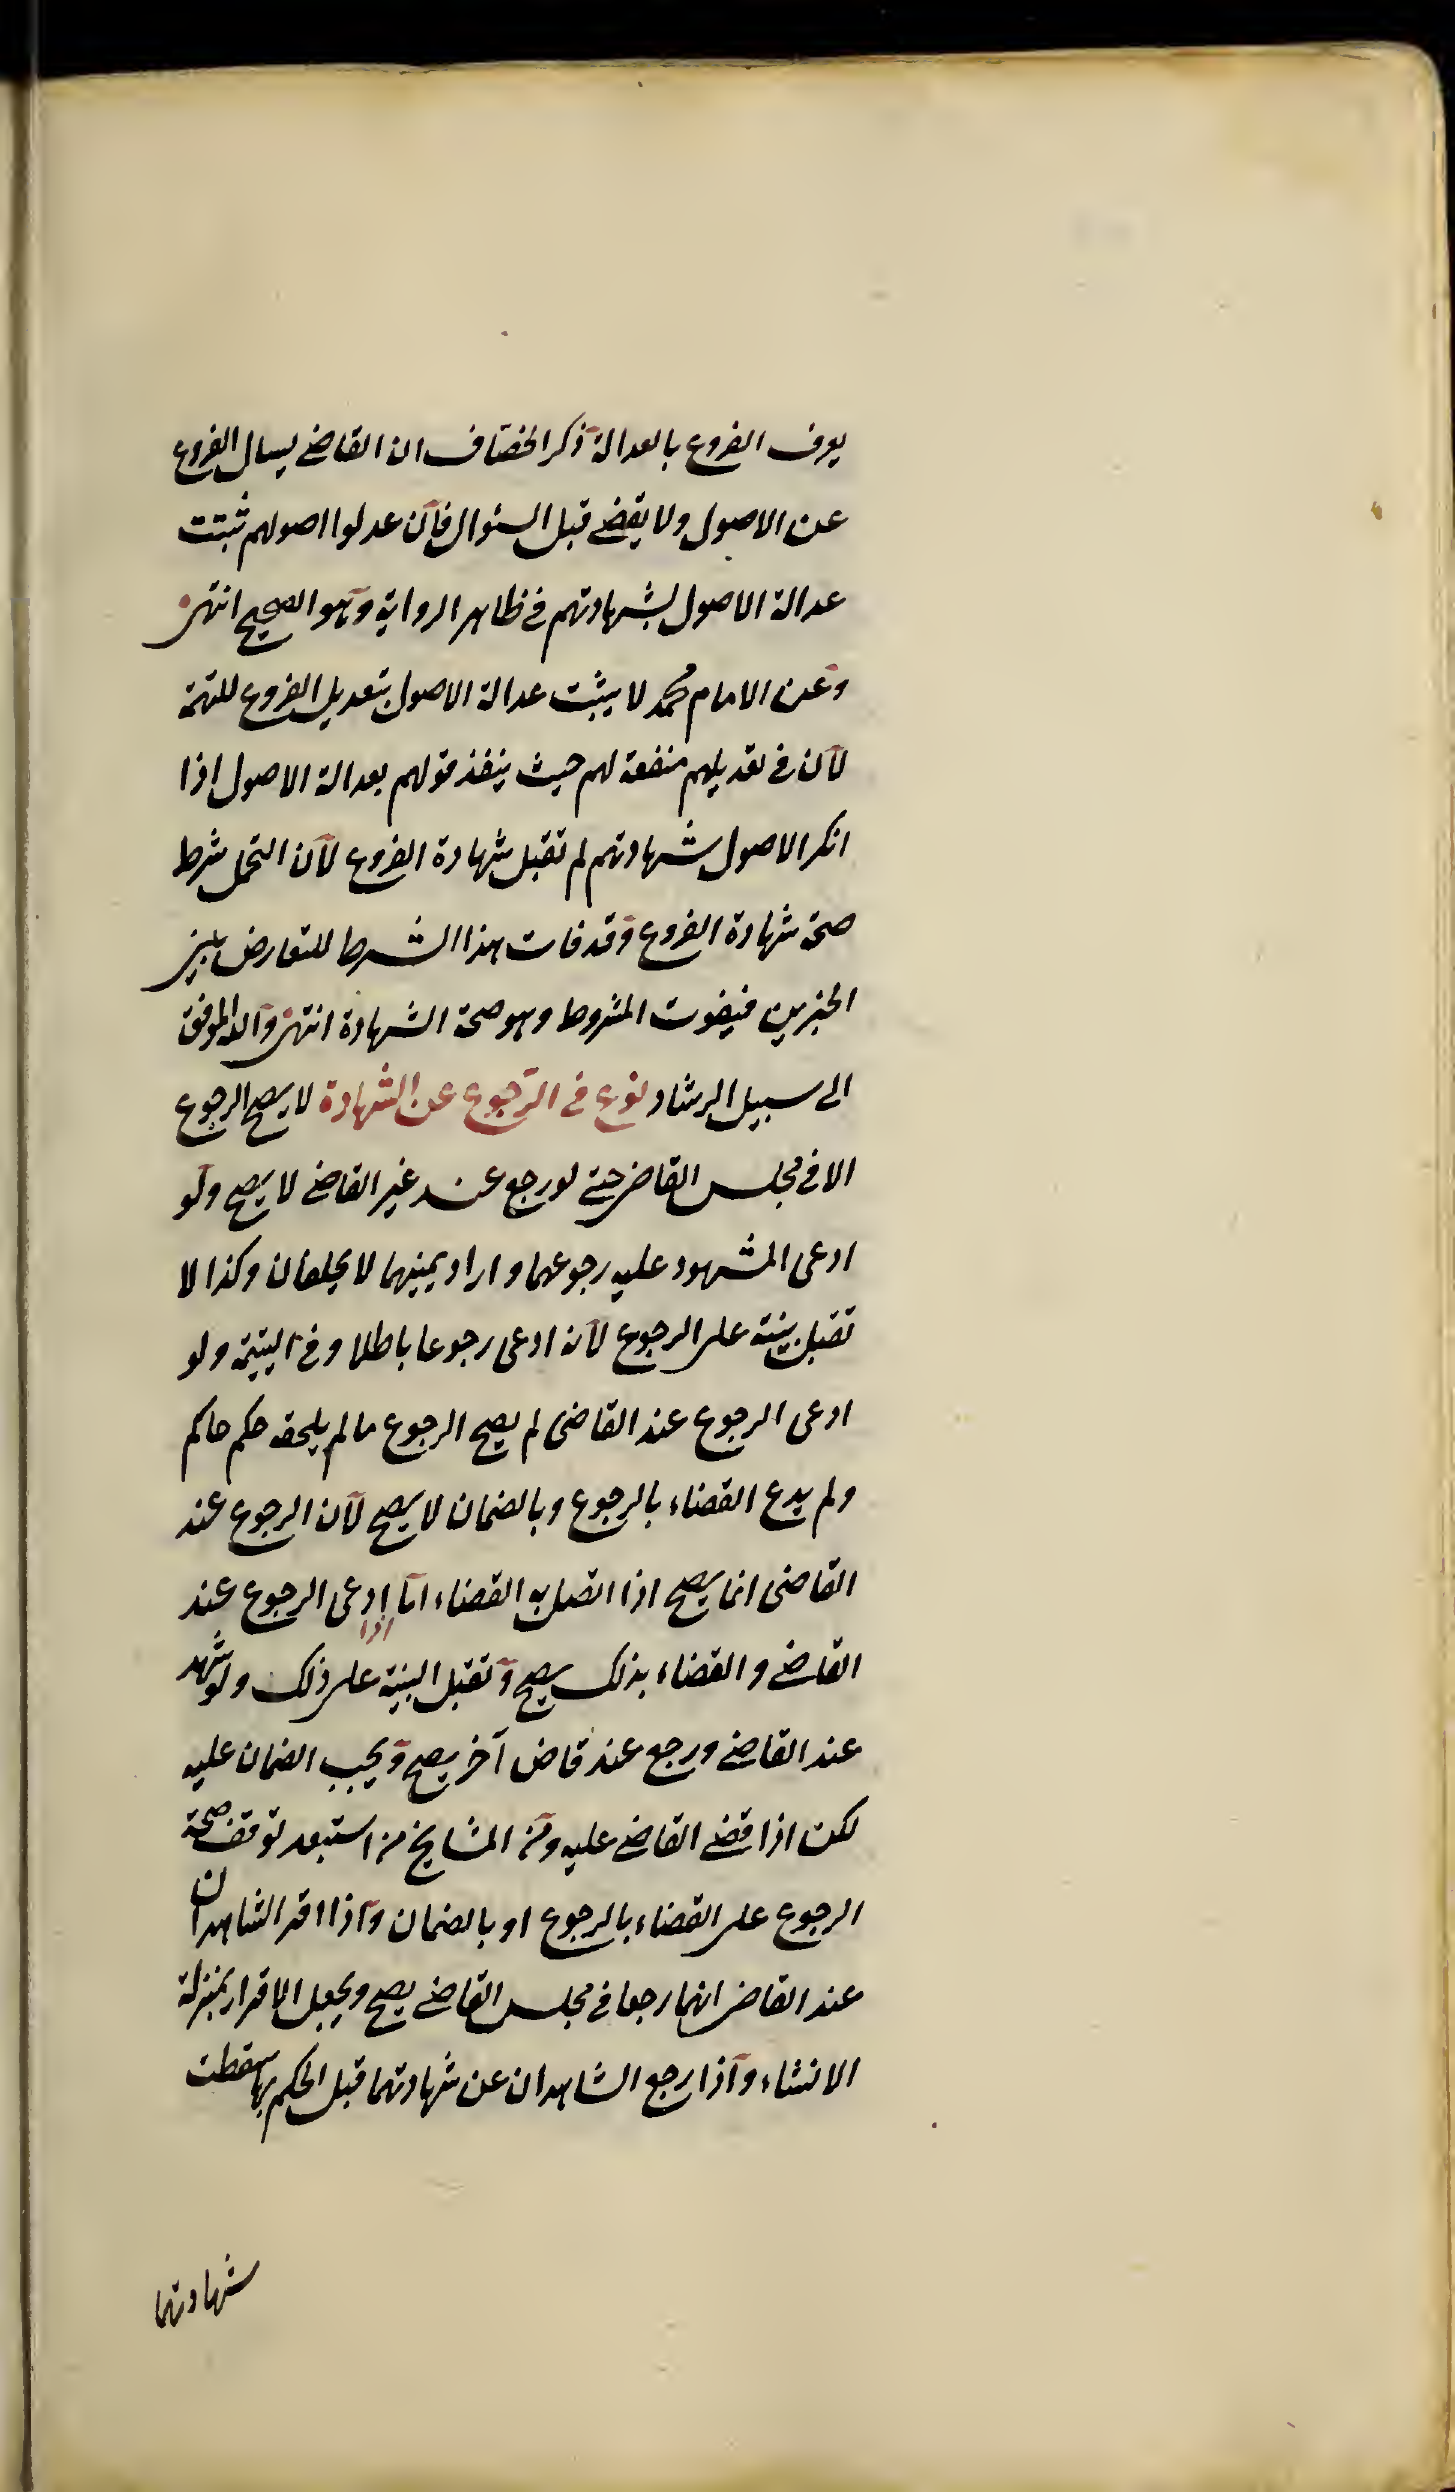 يعرف الفروع بالعدالة ذكر الخصاف ان القاضي يسال الفروع
عن الاصول ولا يقضي قبل السئوال فان عدلوا اصولهم ثبتت
عدالة الاصول بشهادتهم في ظاهر الرواية وهو الصحيح انتهى
وعن الامام محمد لا يثبت عدالة الاصول بتعديل الفروع للتهمة
لان في تعديلهم منفعة لهم حيث ينفذ قولهم بعدالة الاصول اذا
انكر الاصول شهادتهم لم تقبل شهادة الفروع لان التحمل شرط
صحة شهادة الفروع وقد فات هذا الشرط للتعارض بين
الخبرين فيفوت المشروط وهو صحة الشهادة انتهى والله الموفق
الى سبيل الرشاد نوع في الرجوع عن الشهادة لا يصح الرجوع
الا في مجلس القاضي حتى لو رجع عند غير القاضي لا يصح ولو
ادعى المشهود عليه رجوعهما واراد يمينهما لا يحلفان وكذا لا
تقبل بينة على الرجوع لانه ادعى رجوعا باطلا وفي اليتيمة ولو
ادعى الرجوع عند القاضى لم يصح الرجوع مالم يلحقه حكم حاكم
ولم يدع القضاء بالرجوع وبالضمان لا يصح لان الرجوع عند
القاضى انما يصح اذا اتصل به القضاء اما اذا ادعى الرجوع عند
القاضي والقضاء بذلك يصح وتقبل البينة على ذلك ولو شهد
عند القاضي ورجع عند قاض آخر يصح ويجب الضمان عليه
لكن اذا قضى القاضي عليه ومن المشايخ من استبعد توقف صحة
الرجوع على القضاء بالرجوع او بالضمان واذا اقر الشاهدان
عند القاضي انهما رجعا في مجلس القاضي يصح ويجعل الاقرار بمنزلة
الانشاء واذا رجع الشاهدان عن شهادتهما قبل الحكم بها سقطت
شهادتهما